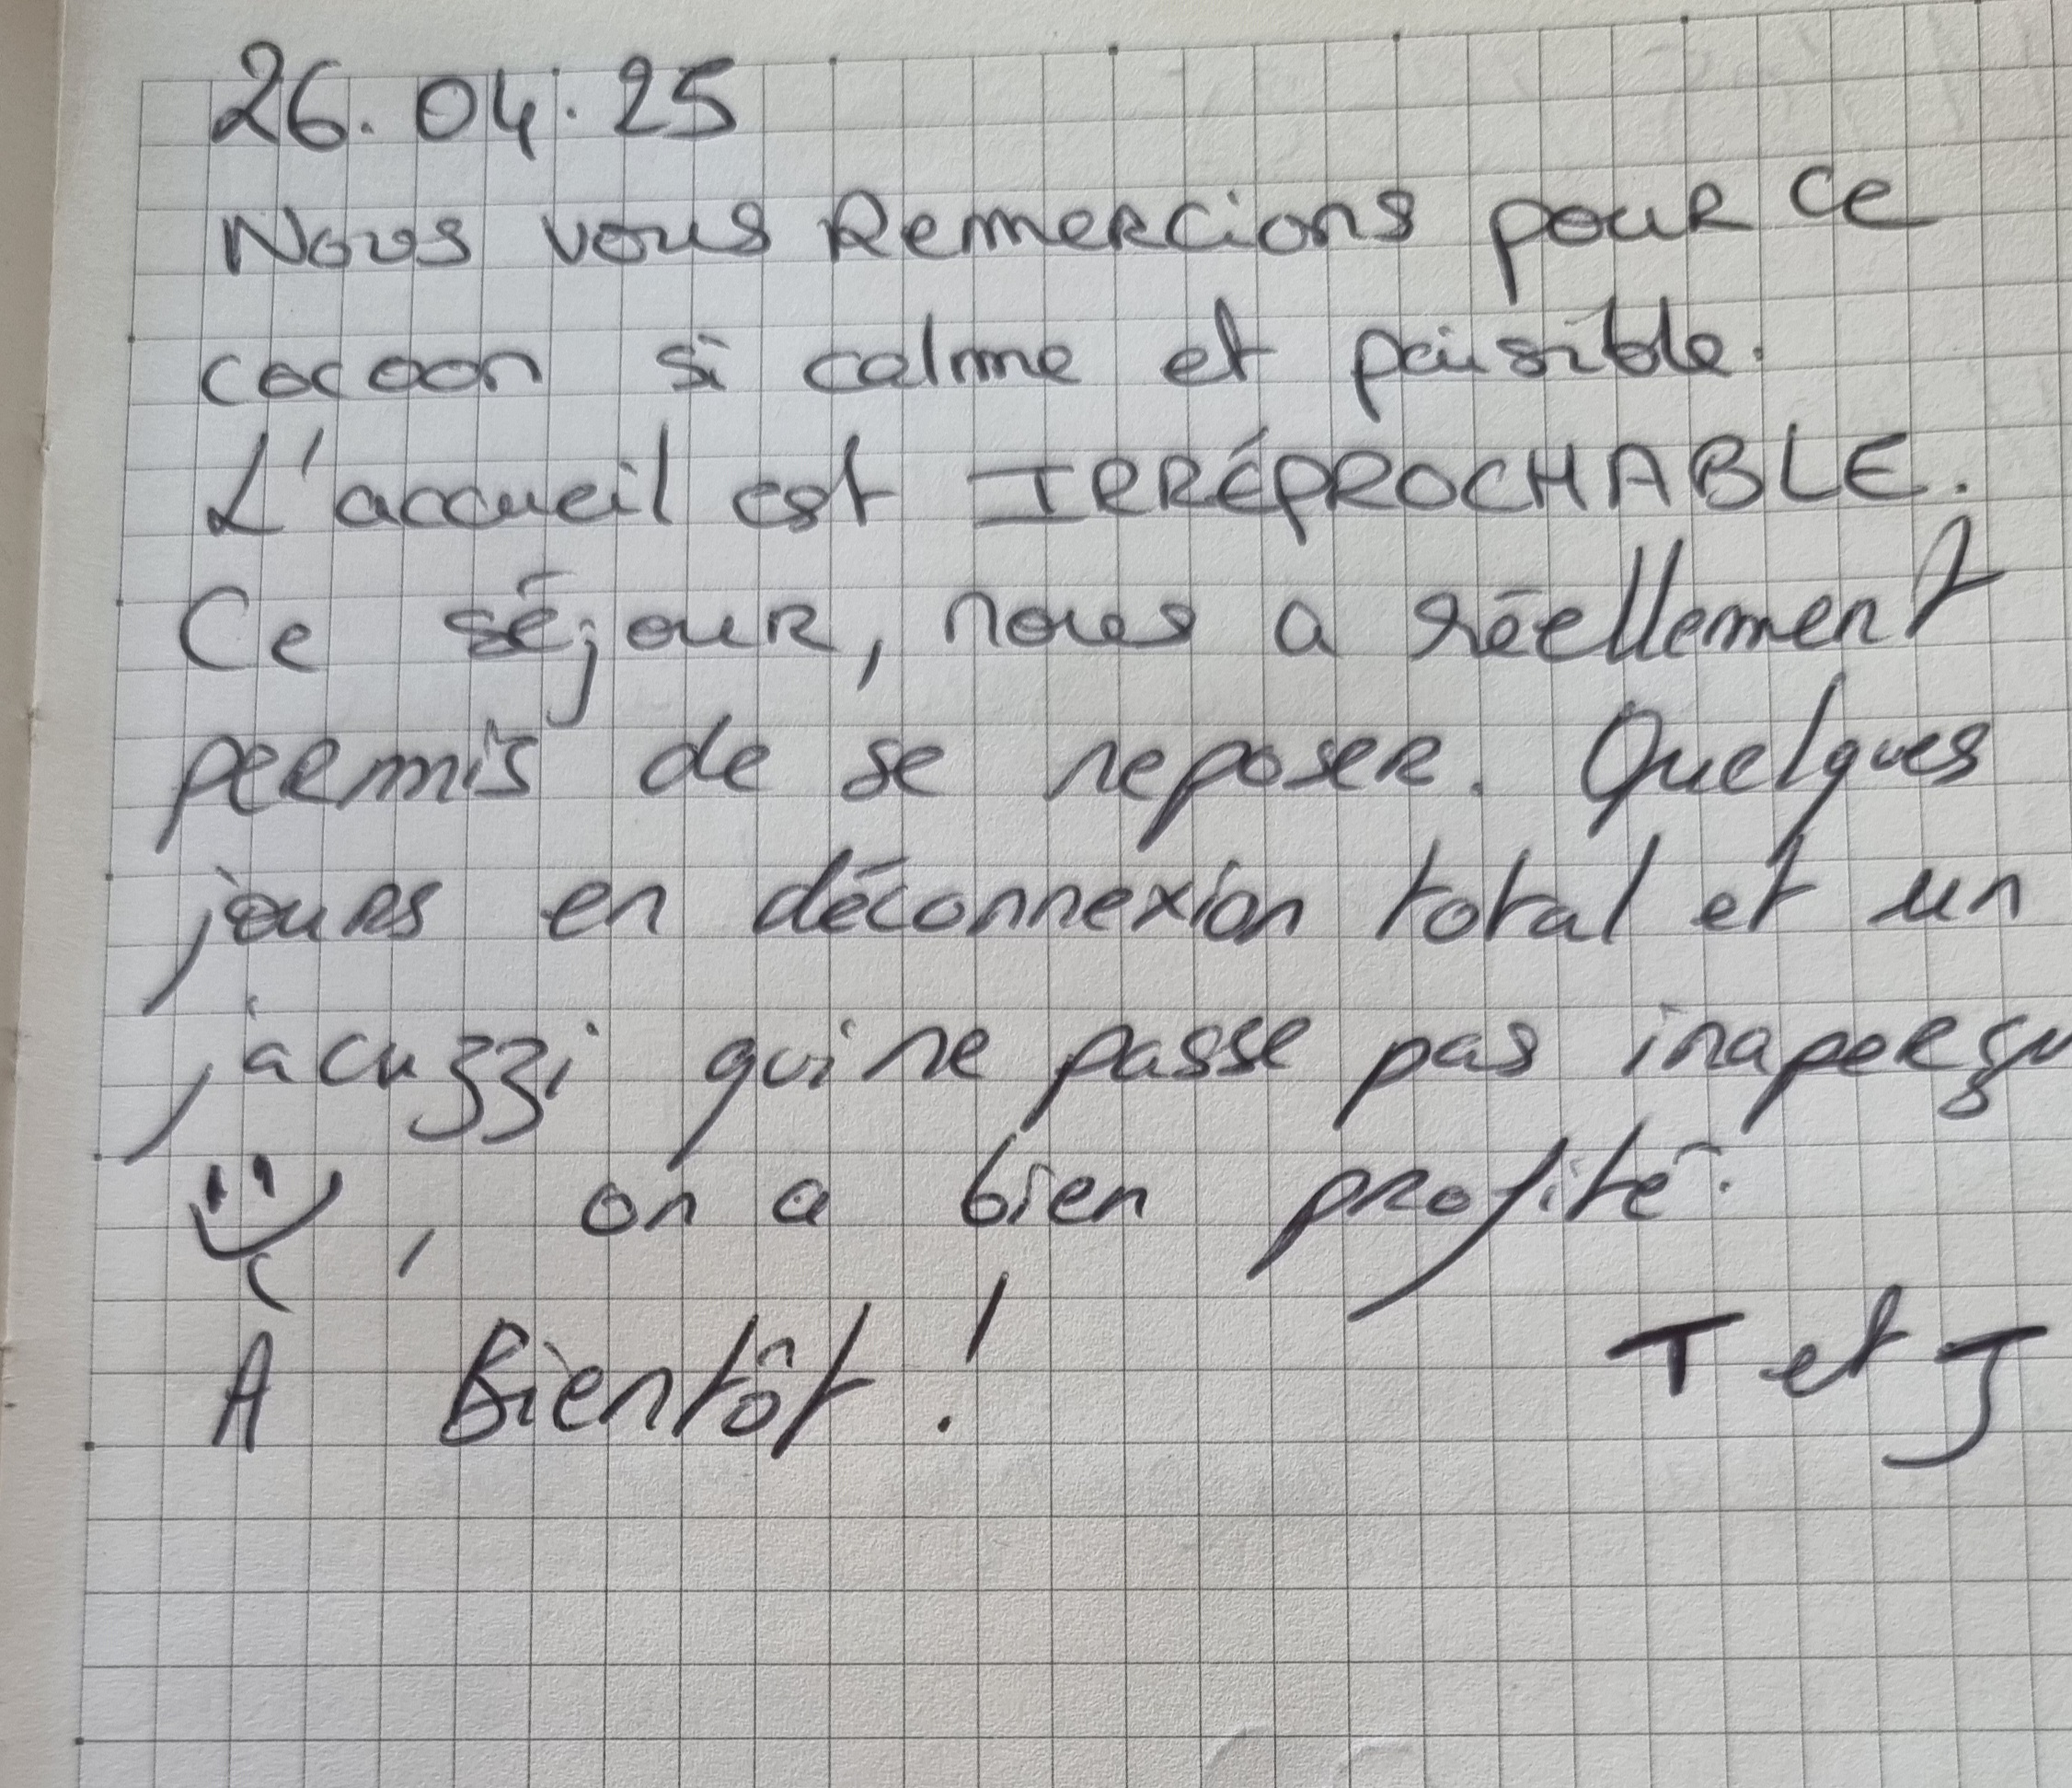 26.04.25
Nous vous Remercions pour ce
cocoon si calme et paisible.
L'accueil est IRRÉPROCHABLE.
Ce séjour, nous a réellement
permis de se reposer. Quelques
jours en déconnexion total et un
jacuzzi qui ne passe pas inaperçu
, on a bien profité.
A Bientôt !
T et J